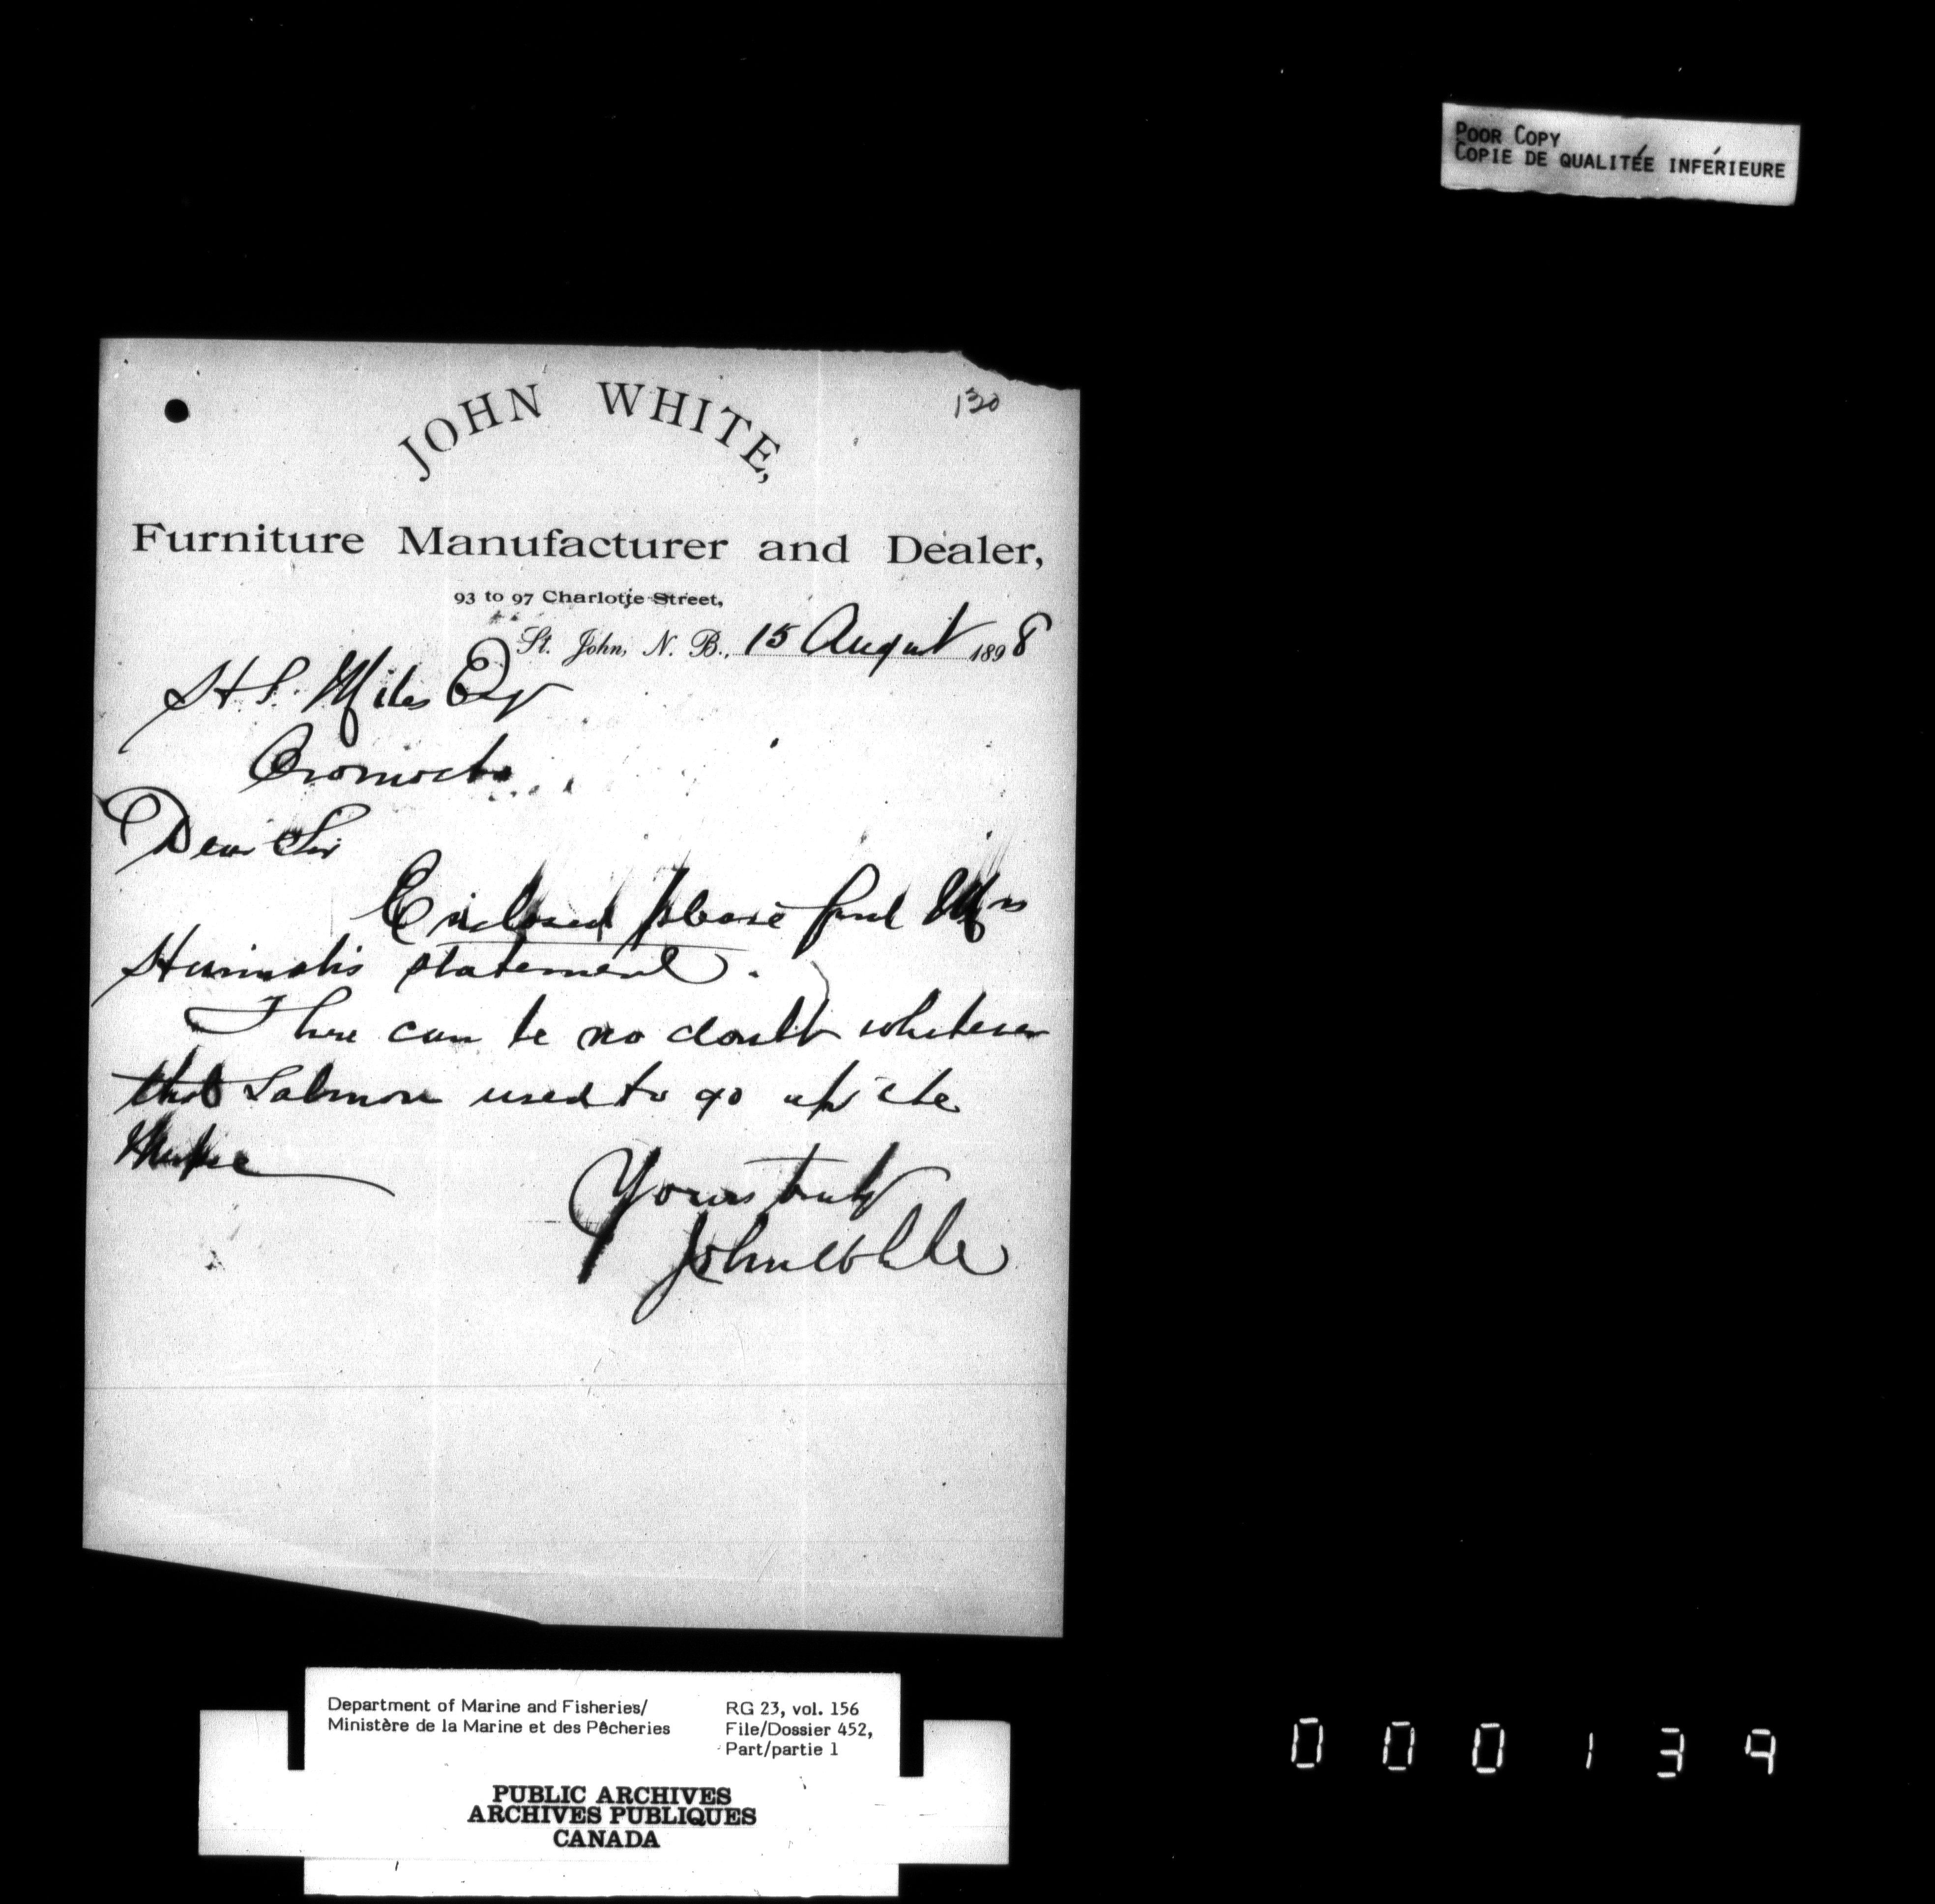 POOR COPY
COPIE DE QUALITÉE INFÉRIEURE
130
JOHN WHITE,
Furniture Manufacturer and Dealer,
93 to 97 Charlotte Street,
St. John, N. B., 15 August 1898
H S. Miles Esq
Oromocto
Dear Sir
Enclosed please find Mrs
statement.
There can be no doubt whatever
that Salmon used to go up the
Yours truly
John White
Department of Marine and Fisheries/
Ministère de la Marine et des Pêcheries
RG 23, vol. 156
File/Dossier 452,
Part/partie 1
PUBLIC ARCHIVES
ARCHIVES PUBLIQUES
CANADA
000139